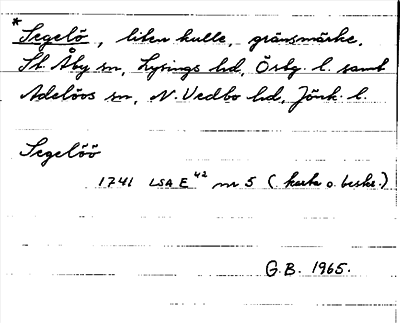 * Segelö, liten kulle, gränsmärke.
St. Åby sn, Lysings hd, Östg. l. samt
Adelövs sn, N. Vedbo hd, Jönk. l.
Segelöö
1741 LSA E 42 nr 5 (karta o. beskr.)
G.B. 1965.